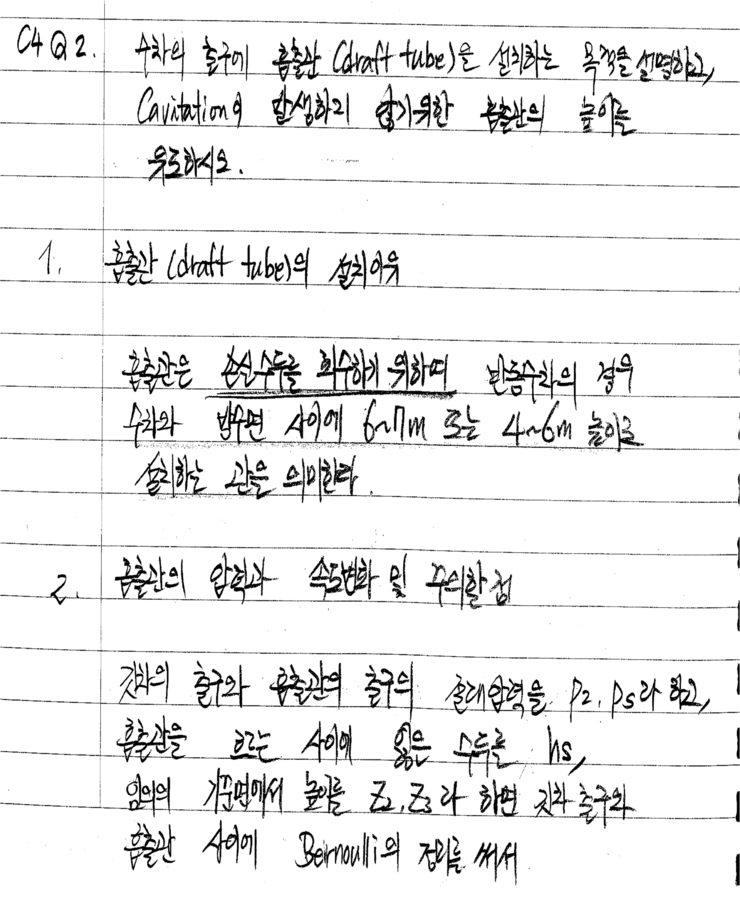 C4 Q 2. 수차의 출구에 흡출관 (draft tube)을 설치하는 목적을 설명하고,
Cavitation이 발생하지 않기위한 흡출관의 높이를
유도하시오.
1. 흡출관 (draft tube)의 설치이유
흡출관은 손실수두를 회수하기 위하여 반동수차의 경우
수차와 방수면 사이에 6~7m 또는 4~6m 높이로
설치하는 관을 의미한다.
2. 흡출관의 압력과 속도변화 및 주의할 점
깃차의 출구와 흡출관의 출구의 절대압력을 P2, P3라 하고,
흡출관을 흐르는 사이에 잃은 수두를 hs,
임의의 기준면에서 높이를 Z2, Z3라 하면 깃차 출구와
흡출관 사이에 Bernoulli의 정리를 써서